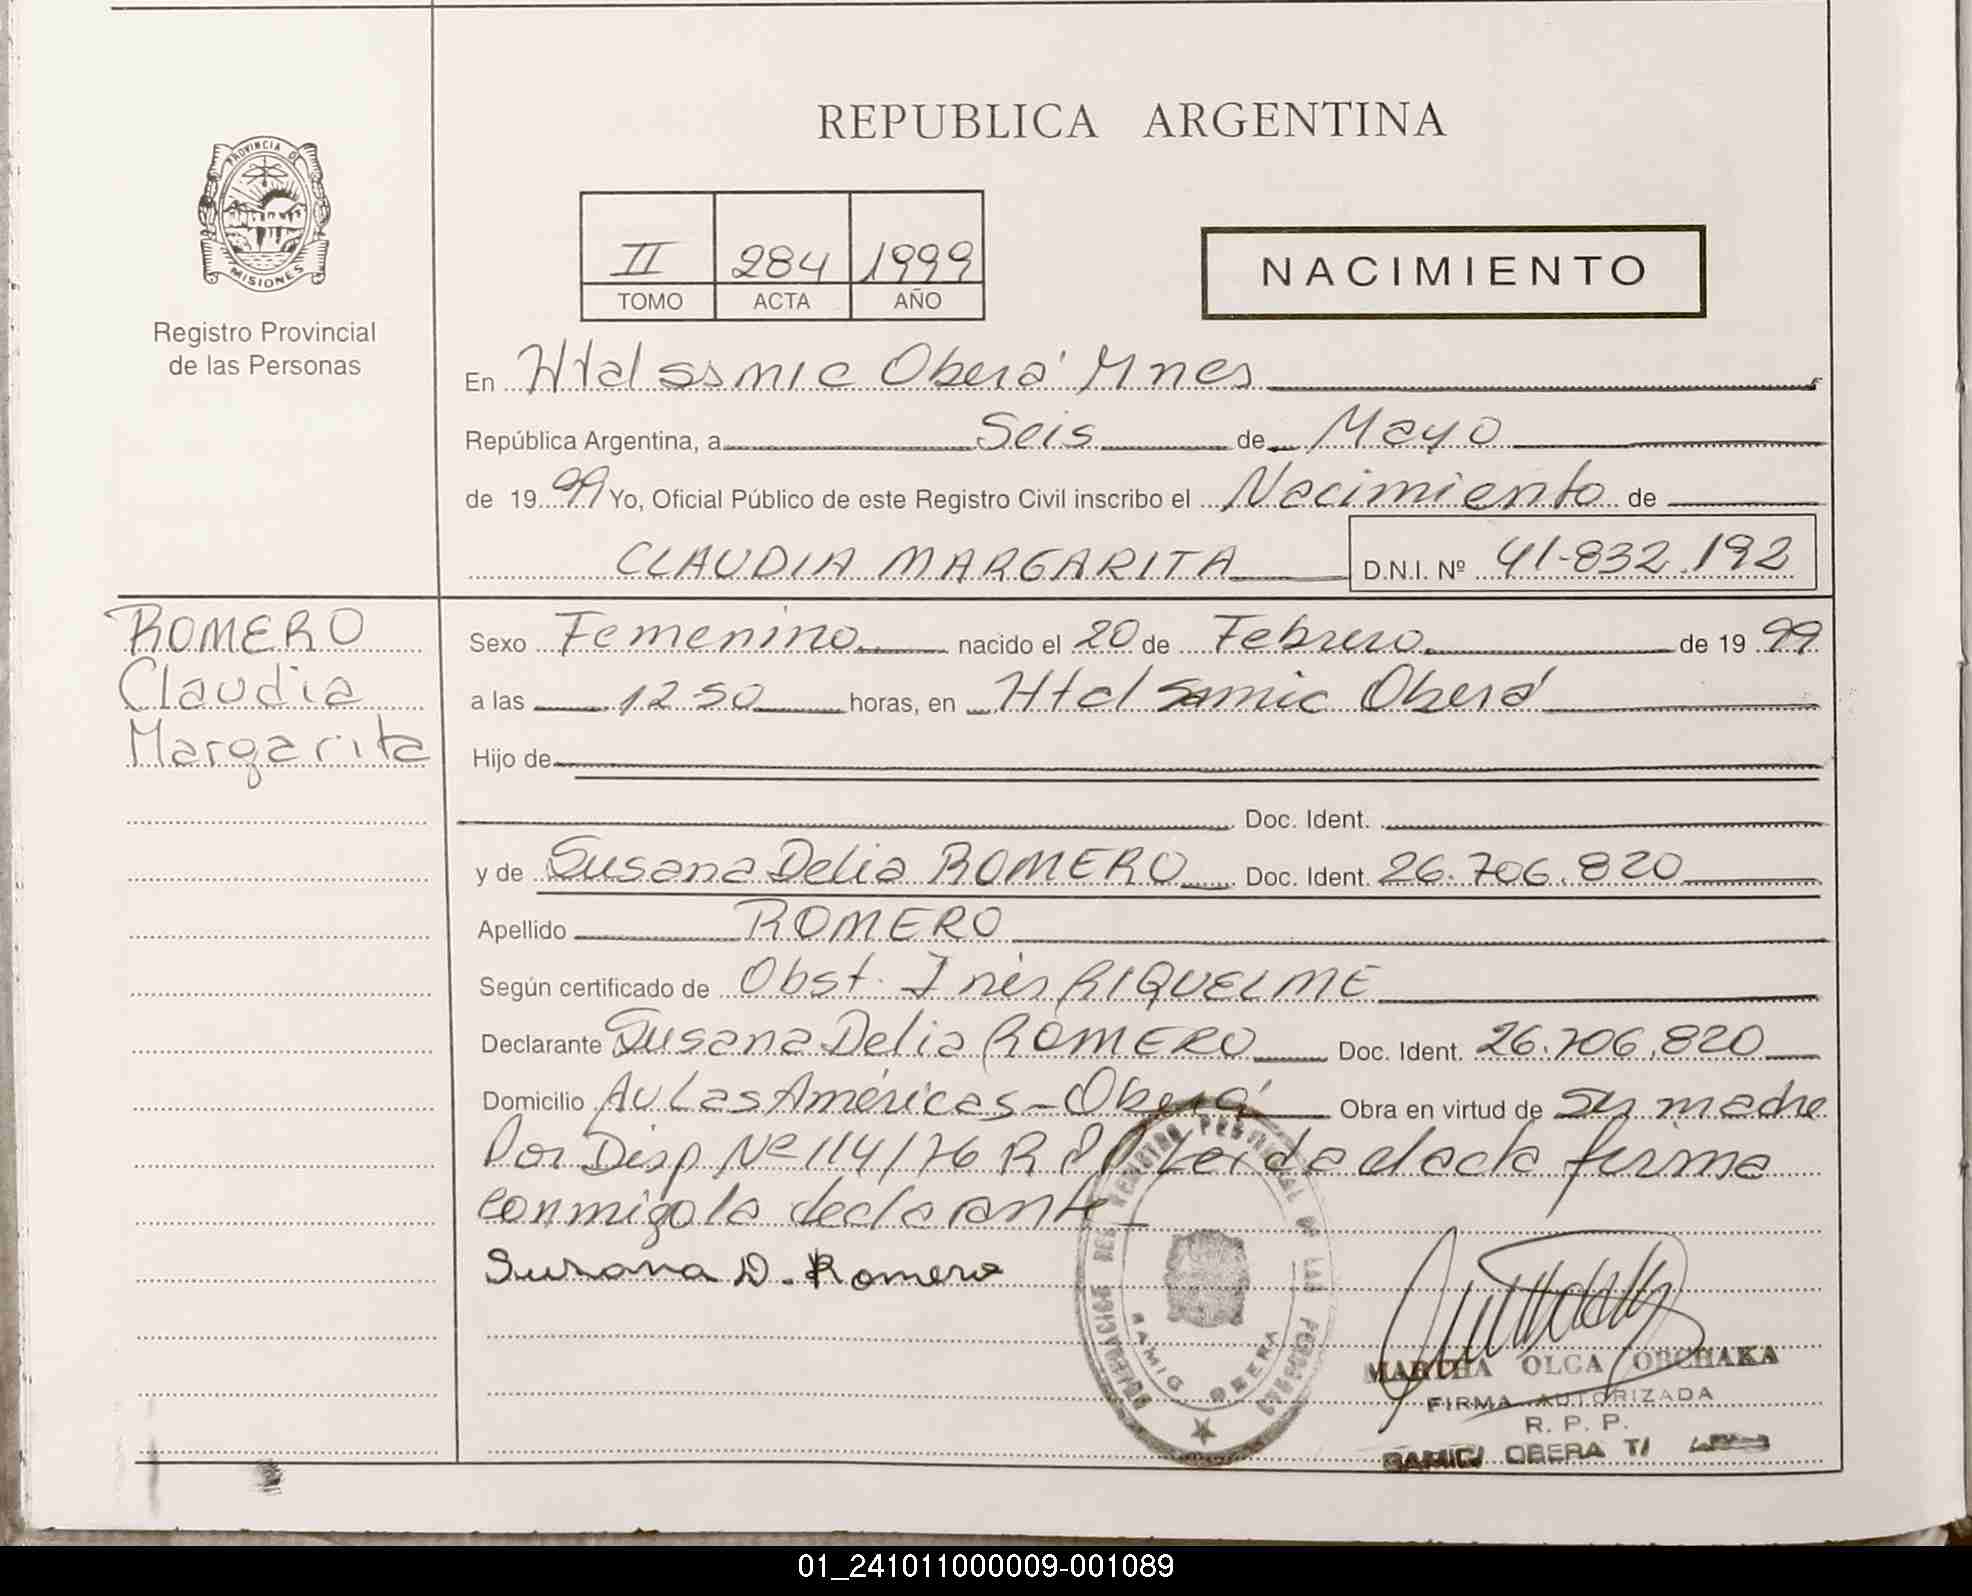 REPUBLICA ARGENTINA
PROVINCIA DE
MISIONES
Registro Provincial
de las Personas
II 284 1999
TOMO ACTA AÑO
NACIMIENTO
En Htal ssmic Oberá Mnes
República Argentina, a Seis de Mayo
de 19 99 Yo, Oficial Público de este Registro Civil inscribo el Nacimiento de
CLAUDIA MARGARITA D.N.I. Nº 41.832.192
ROMERO
Claudia
Margarita
Sexo Femenino nacido el 20 de Febrero de 19 99
a las 12 50 horas, en Htal Samic Oberá
Hijo de
Doc. Ident.
y de Susana Delia ROMERO Doc. Ident. 26.706.820
Apellido ROMERO
Según certificado de Obst. Inés RIQUELME
Declarante Susana Delia ROMERO Doc. Ident. 26.706.820
Domicilio Av Las Américas - Oberá Obra en virtud de su madre
Por Disp Nº 114/76 R P P Leida el acta firma
conmigo la declarante
Susana D. Romero
MARTHA OLGA OBCHAKA
FIRMA AUTORIZADA
R. P. P.
SAMIC/ OBERA T/
01_241011000009-001089